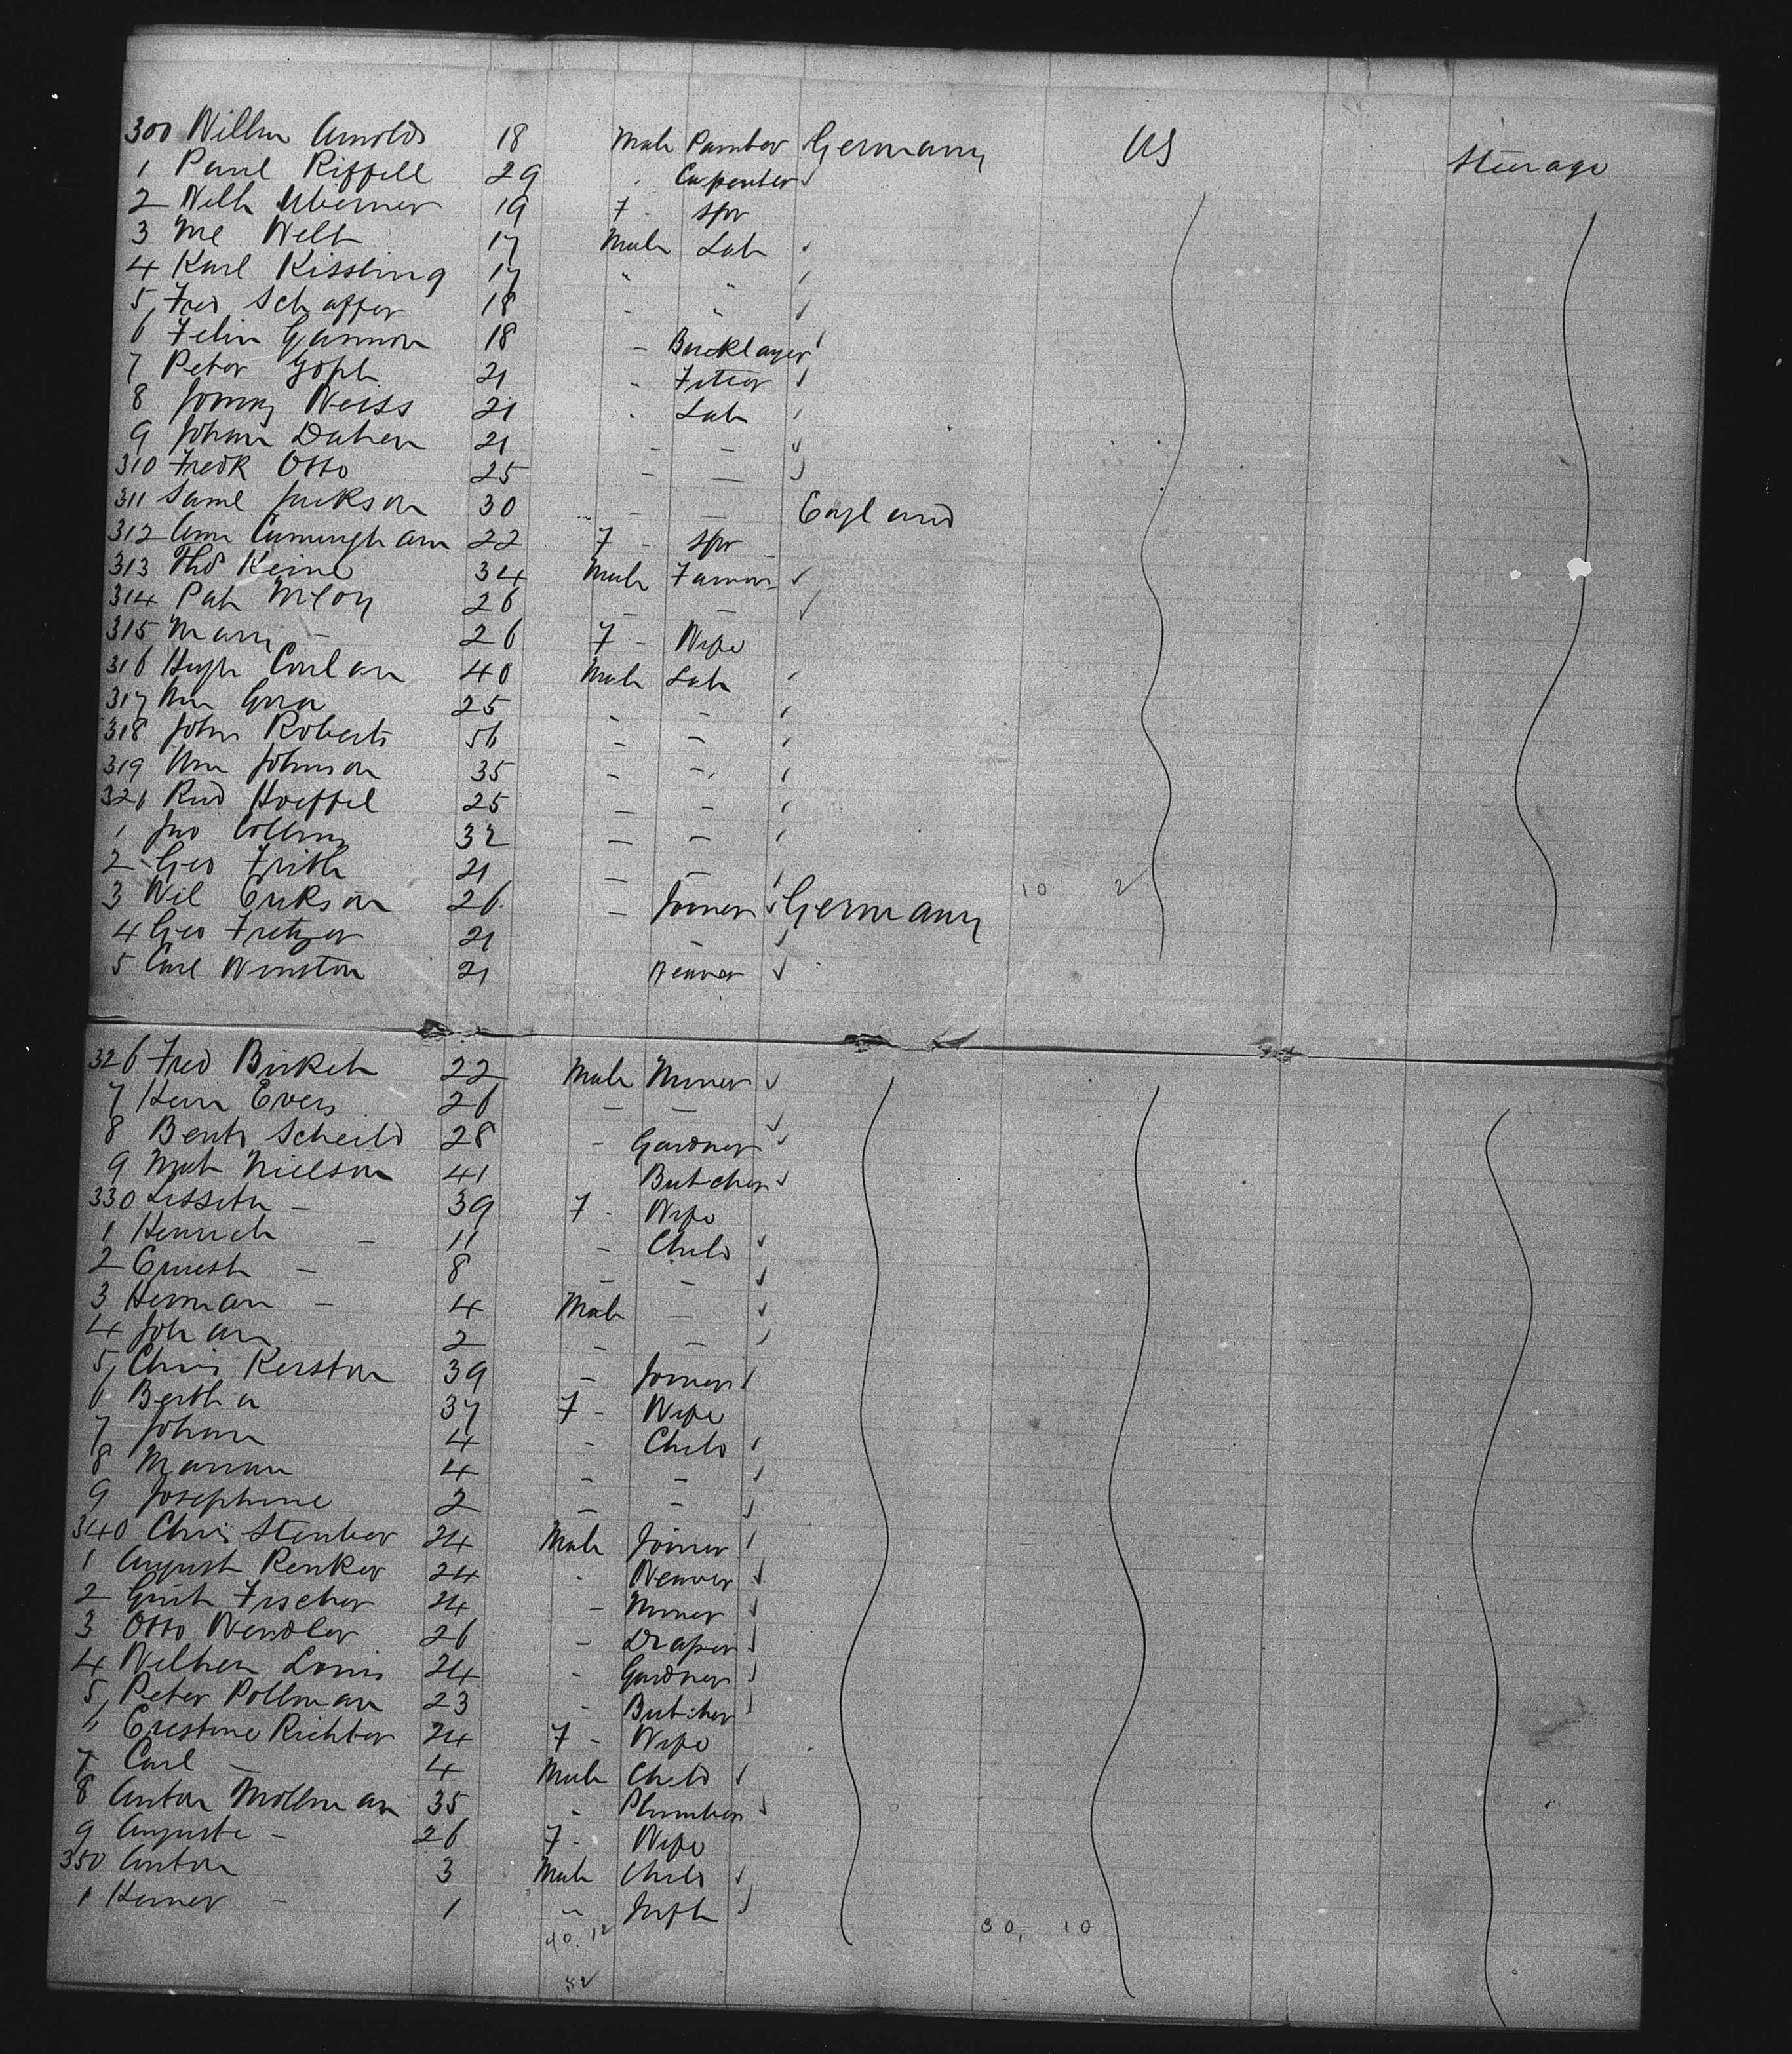 300 Willm Arnolds 18 Male Painter Germany US Steerage
1 Paul Riffell 29 " Carpenter
2 Welh 19 F - Spr
3 Me Welh 17 Male Lab
4 Karl Kissling 17 " "
5, Fred Schaffer 18 " "
6 Felin Gannon 18 - Bricklayer
7 Peter Goph 21 " Fitter
8 Weiss 21 " Lab
9 Johan Daben 21 - -
310 Fredk Otto 25 - -
311 Saml Jackson 30 - - England
312 Ann Cunningham 22 F - Spr
313 Thos Keine 34 Male Farmer
314 Pat McCoy 26 - -
315 Mary - 26 F - Wife
316 Hugh Conlan 40 Male Lab
317 Wm 25 - -
318 John Roberts 56 - -
319 Wm Johnson 35 - -
320 Rud Hoeffel 25 - -
1 Jno Collins 32 - -
2 Geo Frith 21 - -
3 Wil Erikson 26 - Joiner Germany 10 2
4 Geo Fretzer 21 -
5 Carl Winston 21 Weaver
326 Fred Birket 22 Male Miner
7 Hein Evers 26 - -
8 Scheild 28 - Gardner
9 Mat Nielson 41 Butcher
330 Lisseth - 39 F - Wife
1 Henrich - 11 - Child
2 Ernest - 8 - -
3 Herman - 4 Male -
4 Johan 2 - -
5, Chris Kerston 39 - Joiner
6 Bertha 37 F - Wife
7 Johan 4 - Child
8 Marian 4 - -
9 Josephine 2 - -
340 Chris Stenber 24 Male Joiner
1 August Renker 24 " Weaver
2 Gust Fischer 24 - Miner
3 Otto Wendler 26 - Draper
4 Welhem Louis 24 - Gardner
5, Peter Pollman 23 - Butcher
6 Erestine Richter 24 F - Wife
7 Carl - 4 Male Child
8 Anton Mollman 35 " Plumber
9 Auguste - 26 F - Wife
350 Anton 3 Male Child
1 Herner - 1 " Inft
40. 12 30, 10
52